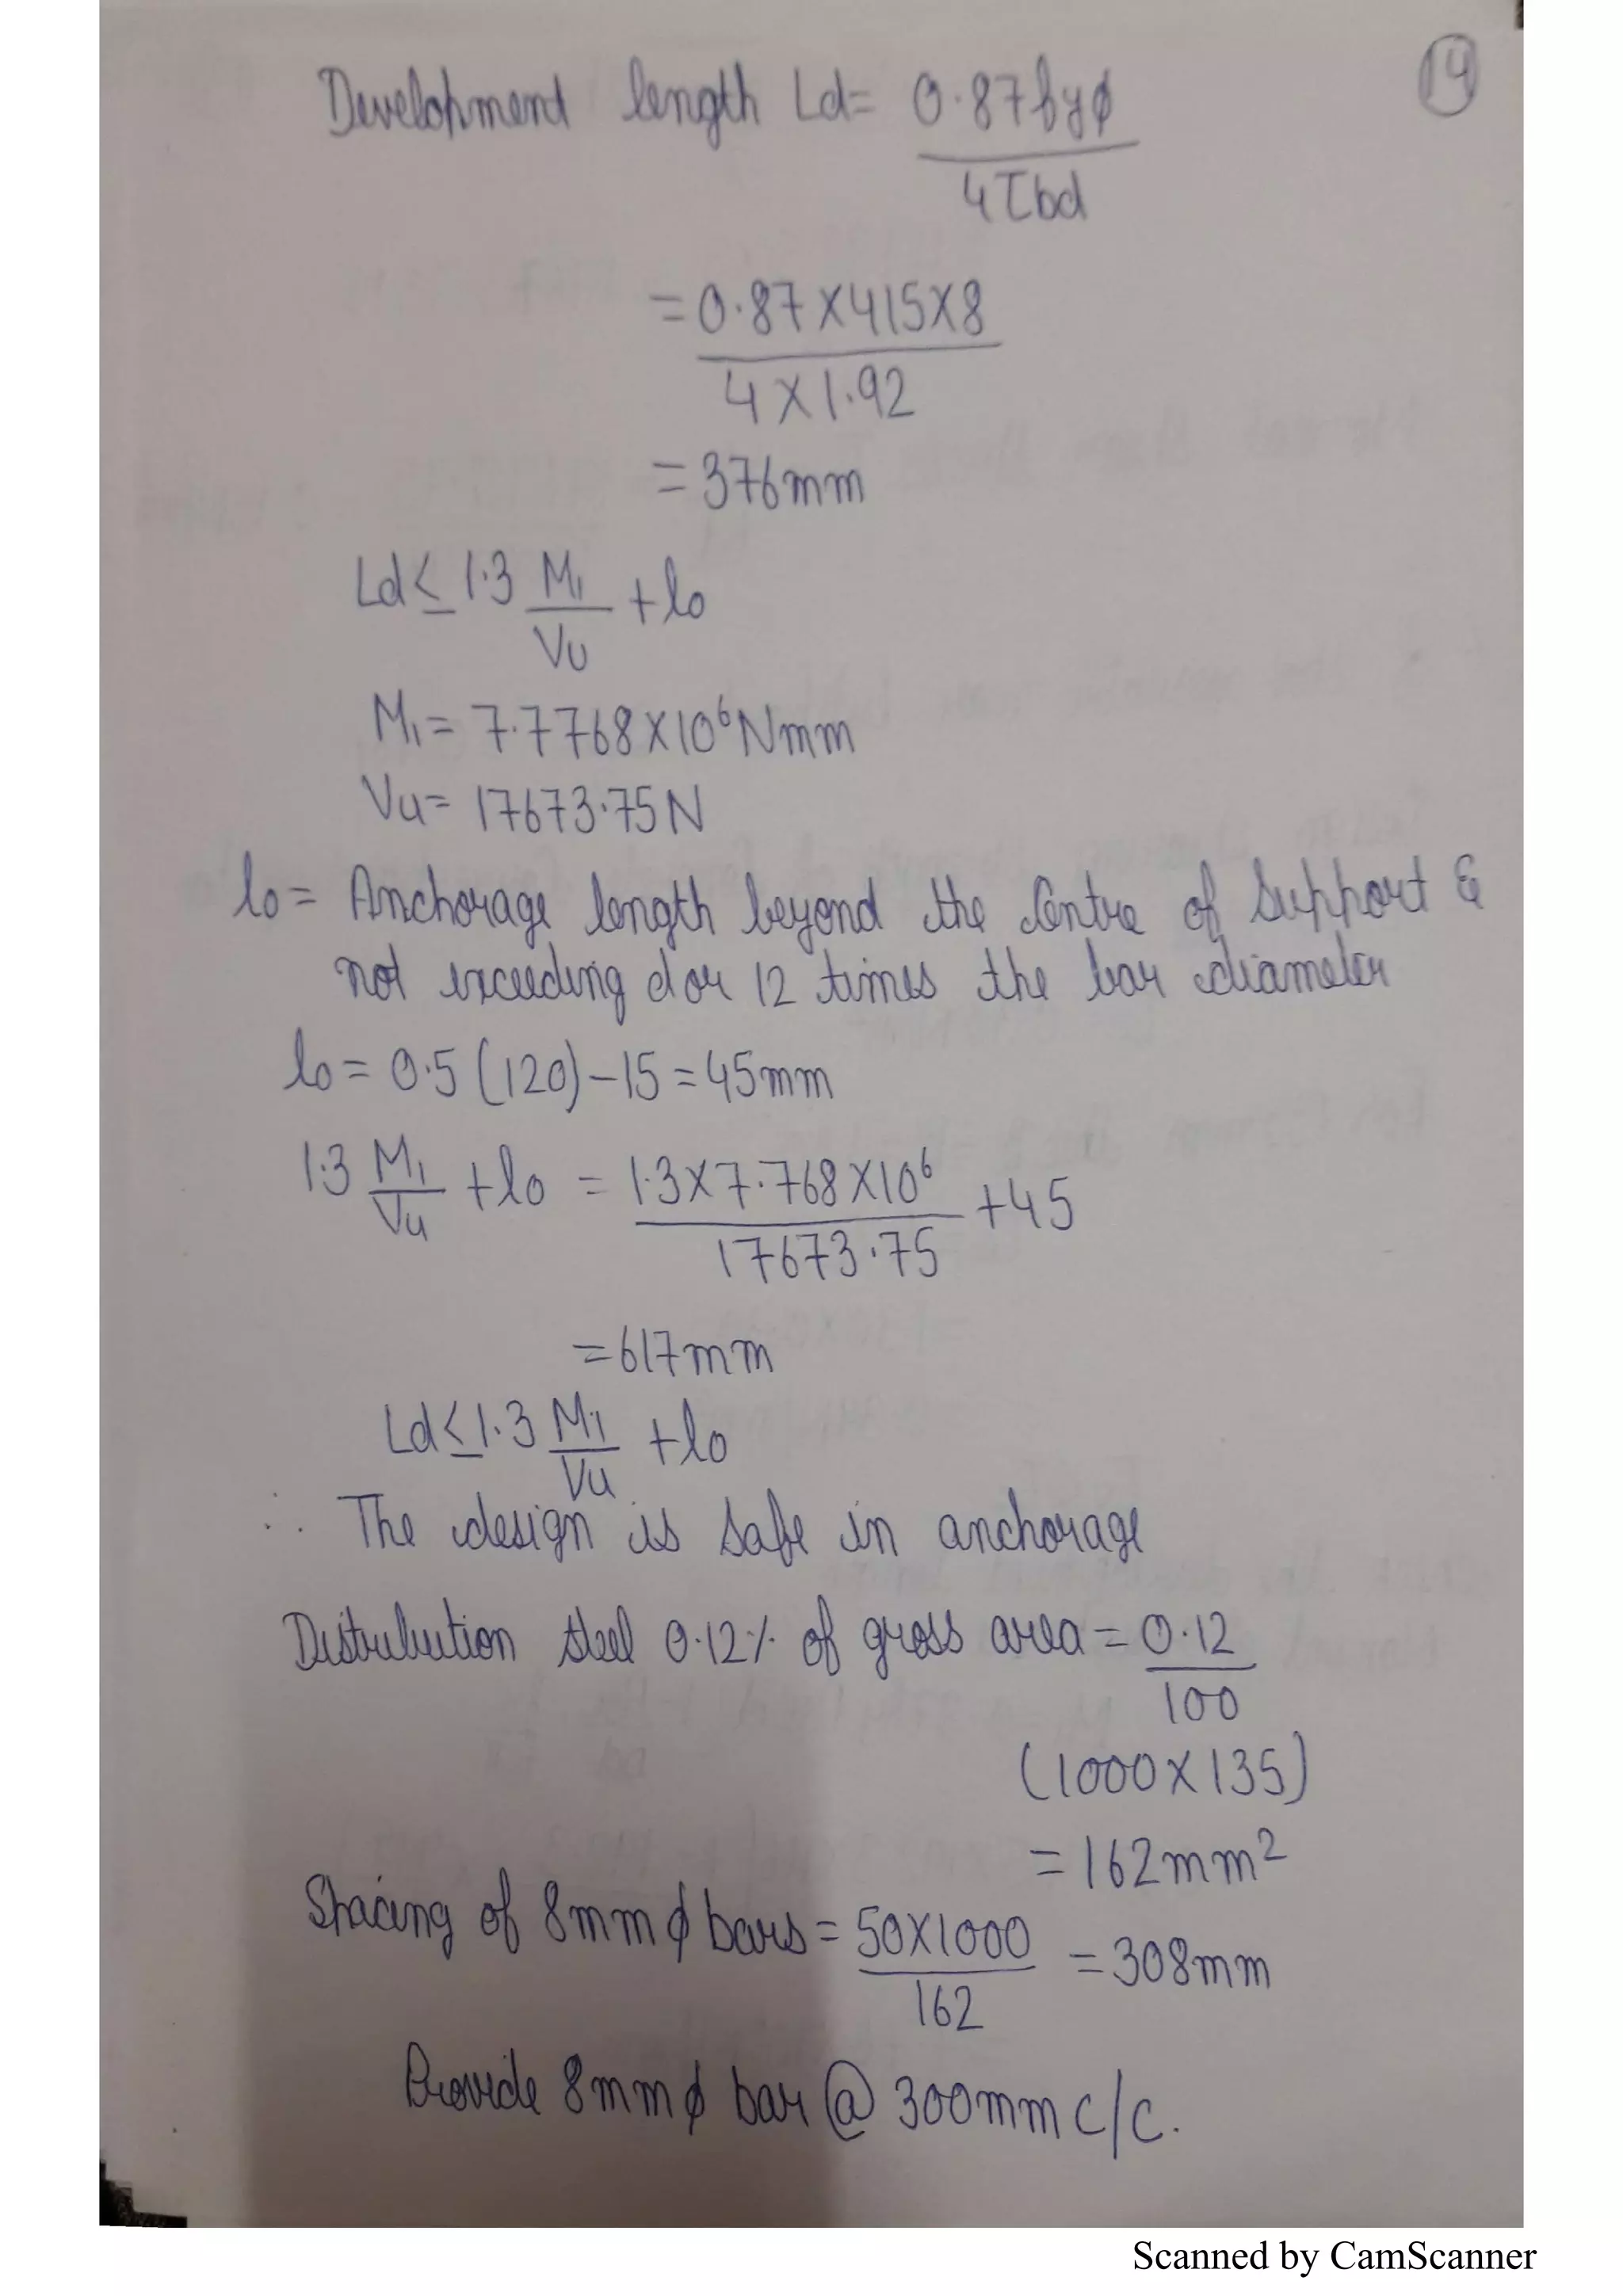 Development length Ld = 0.87fyϕ
4τbd
14
= 0.87 X 415 X 8
4 X 1.92
= 376mm
Ld ≤ 1.3 M1 + lo
Vu
M1 = 7.7768 X 10^6 Nmm
Vu = 17673.75N
lo = Anchorage length beyond the Centre of Support &
not exceeding d or 12 times the bar diameter
lo = 0.5 (120) - 15 = 45mm
1.3 M1 + lo = 1.3 X 7.768 X 10^6 + 45
Vu 17673.75
= 617mm
Ld ≤ 1.3 M1 + lo
Vu
∴ The design is Safe in anchorage
Distribution steel 0.12% of gross area = 0.12
100
(1000 X 135)
= 162mm²
Spacing of 8mm ϕ bars = 50X1000 = 308mm
162
Provide 8mm ϕ bar @ 300mm c/c.
Scanned by CamScanner